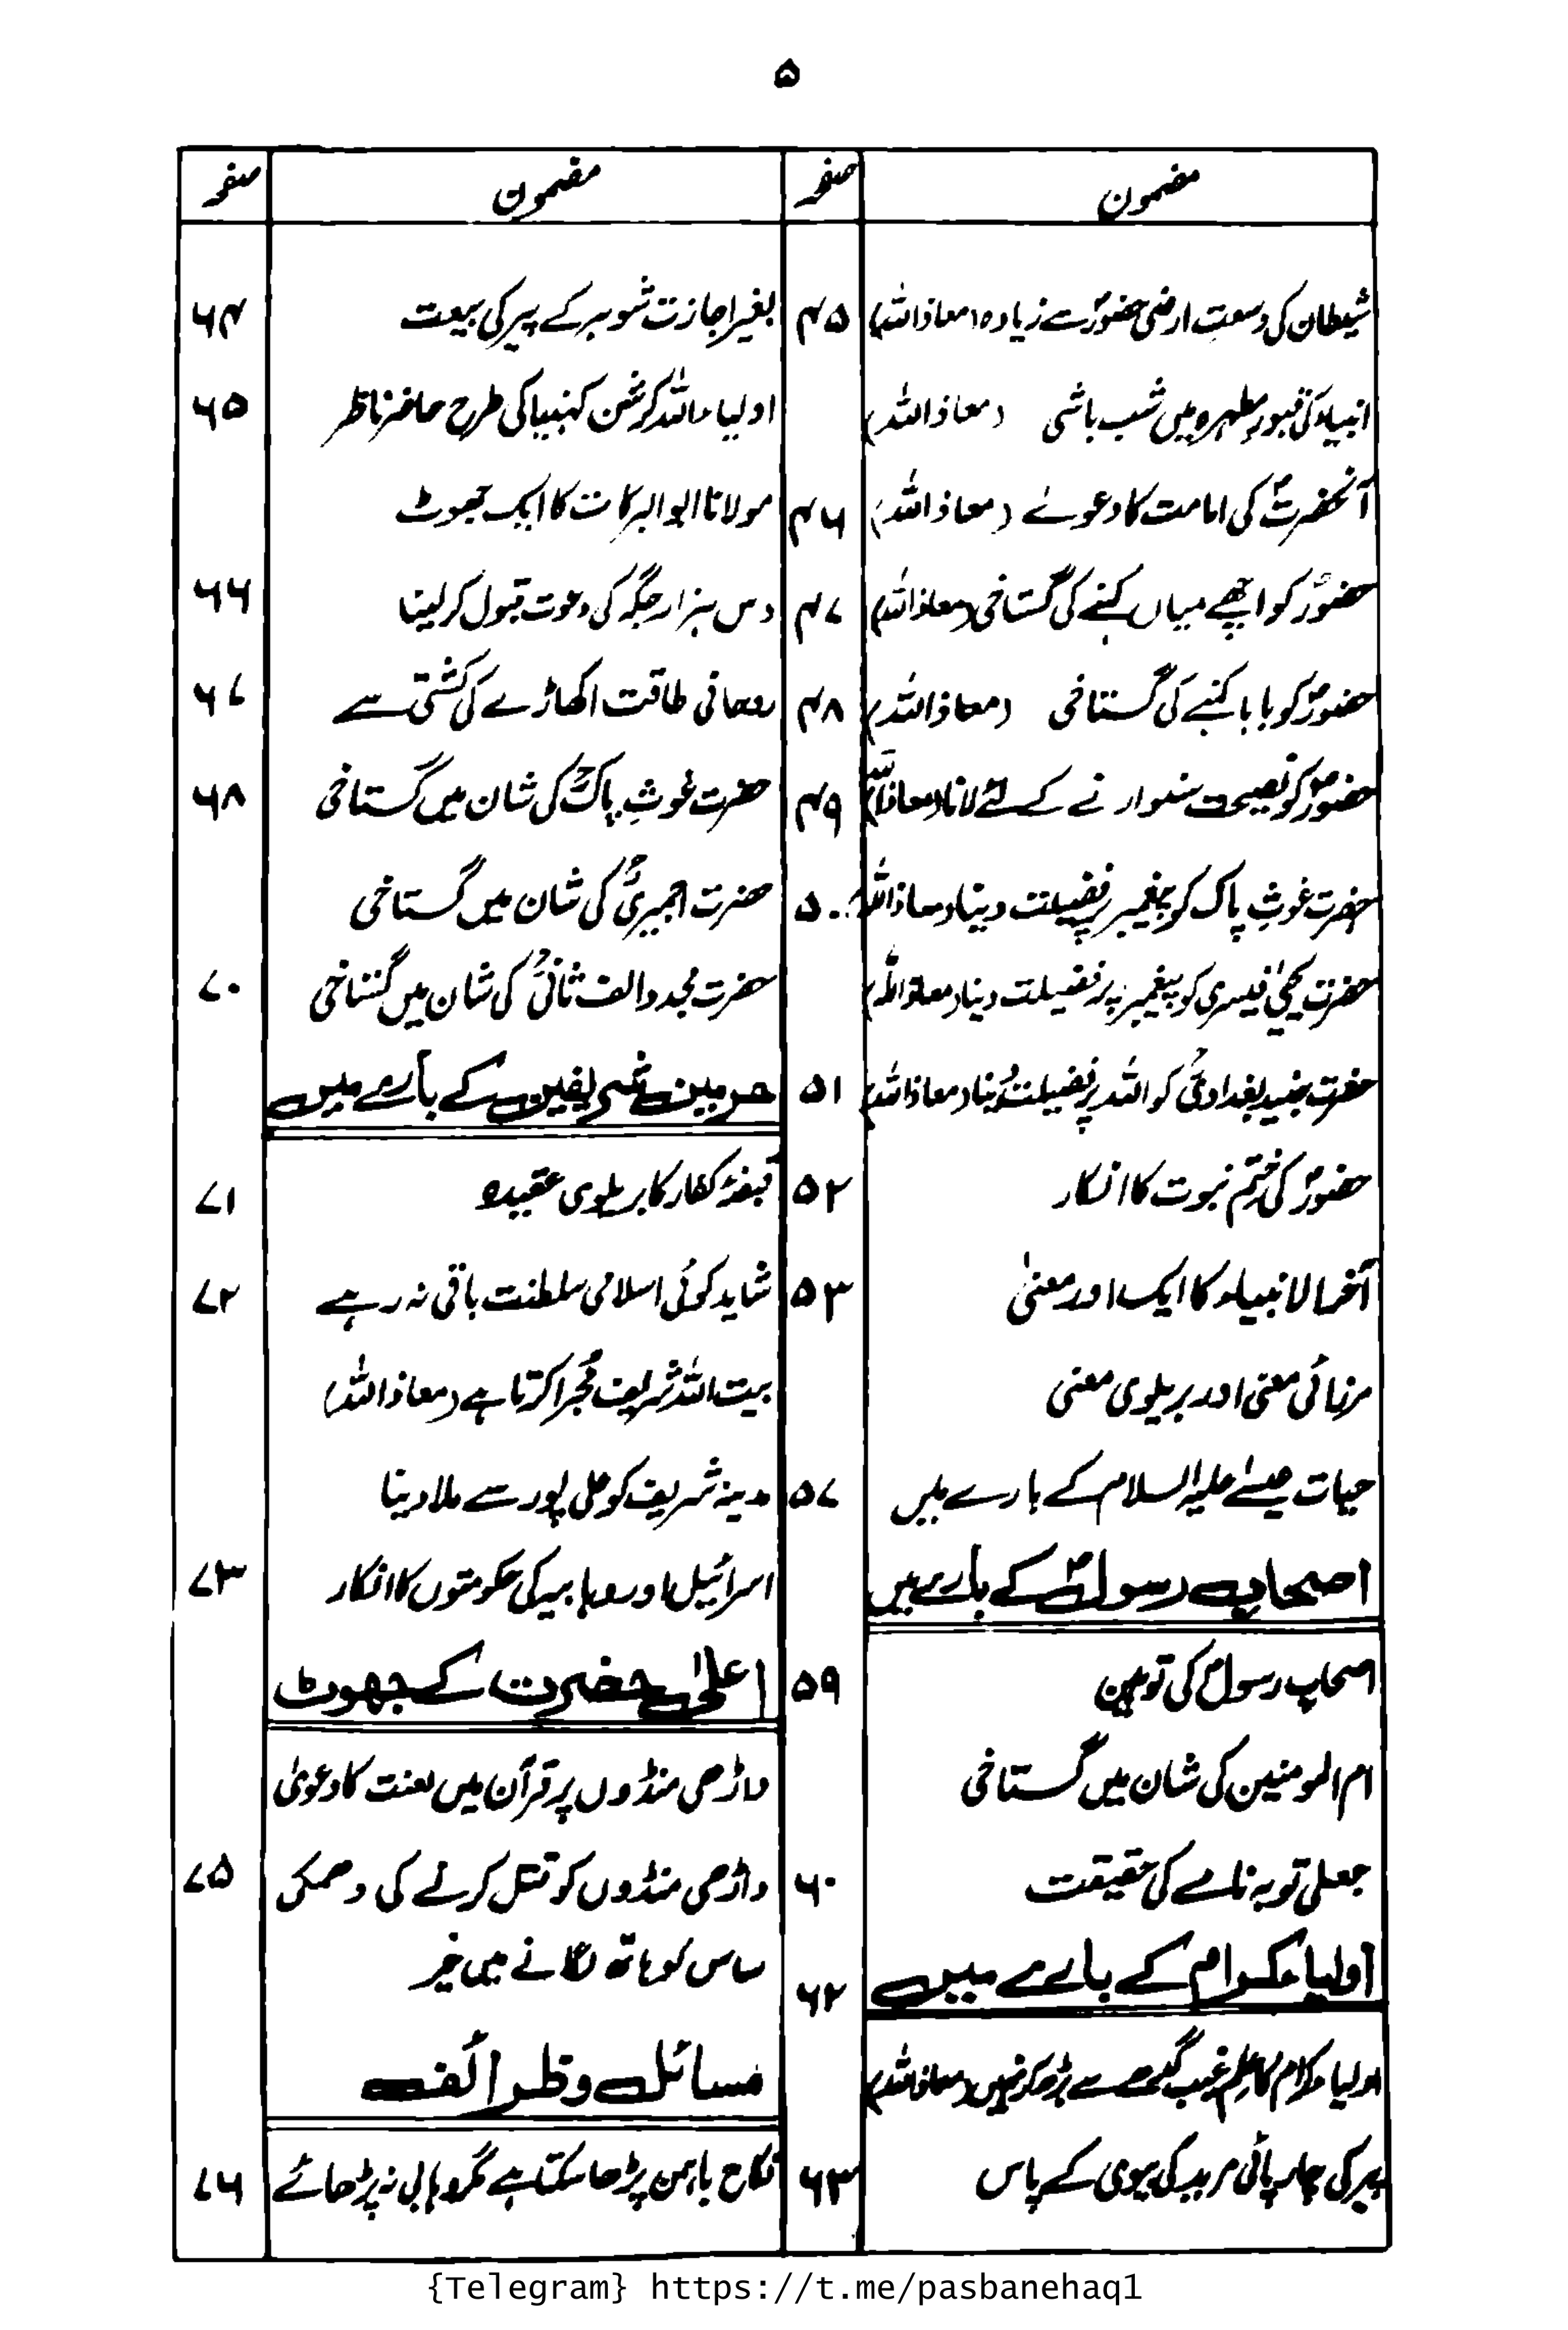 ۵
مضمون صفحہ
شیطان کی وسعتِ ارضی حضورؐ سے زیادہ (معاذ اللہ) ۴۵
انبیاء کی قبور مطہرہ میں شب باشی (معاذ اللہ)
آنحضرتؐ کی امامت کا دعوےٰ (معاذ اللہ) ۴۶
حضورؐ کو اچھے میاں کہنے کی گستاخی (معاذ اللہ) ۴۷
حضورؐ کو بابا کہنے کی گستاخی (معاذ اللہ) ۴۸
حضورؐ کو نصیحت سنوارنے کے لئے لانا (معاذ اللہ) ۴۹
حضرت غوثِ پاک کو پیغمبر پر فضیلت دینا (معاذ اللہ) ۵۰
حضرت یحییٰ کو پیغمبر پر فضیلت دینا (معاذ اللہ)
حضرت جنید بغدادیؒ کو اللہ پر فضیلت دینا (معاذ اللہ) ۵۱
حضورؐ کی ختم نبوت کا انکار ۵۲
آخر الانبیاء کا ایک اور معنیٰ ۵۳
مرزائی معنی اور بریلوی معنی
حیات عیسےٰ علیہ السلام کے بارے میں ۵۷
اصحابِ رسولؐ کے بارے میں
اصحاب رسولؐ کی توہین ۵۹
ام المومنین کی شان میں گستاخی
جعلی توبہ نامے کی حقیقت ۶۰
اولیاء کرام کے بارے میں ۶۲
اولیاء کرام کا علم غیب گدھے سے بڑھ کر نہیں (معاذ اللہ)
پیر کی چارپائی مرید کی بیوی کے پاس ۶۳
مضمون صفحہ
بغیر اجازت شوہر کے پیر کی بیعت ۶۴
اولیاء اللہ کرشن کنہیا کی طرح حاضر ناظر ۶۵
مولانا ابوالبرکات کا ایک جھوٹ
دس ہزار جگہ کی دعوت قبول کر لینا ۶۶
روحانی طاقت اکھاڑے کی کشتی سے ۶۷
حضرت غوثِ پاکؒ کی شان میں گستاخی ۶۸
حضرت اجمیریؒ کی شان میں گستاخی
حضرت مجدد الف ثانیؒ کی شان میں گستاخی ۷۰
حرمین شریفین کے بارے میں
قبضۂ کفار کا بریلوی عقیدہ ۷۱
شاید کوئی اسلامی سلطنت باقی نہ رہے ۷۲
بیت اللہ شریف مجرا کرتا ہے (معاذ اللہ)
مدینہ شریف کو علی پور سے ملا دینا
اسرائیل اور وہابیہ کی حکومتوں کا انکار ۷۳
اعلیٰ حضرت کے جھوٹ
داڑھی منڈوں پر قرآن میں لعنت کا دعویٰ
داڑھی منڈوں کو قتل کرنے کی دھمکی ۷۵
ساس کو ہاتھ لگانے میں خیر
مسائل وظرائف
نکاح باہمن پڑھا سکتا ہے مگر وہابی نہ پڑھائے ۷۶
{Telegram} https://t.me/pasbanehaq1